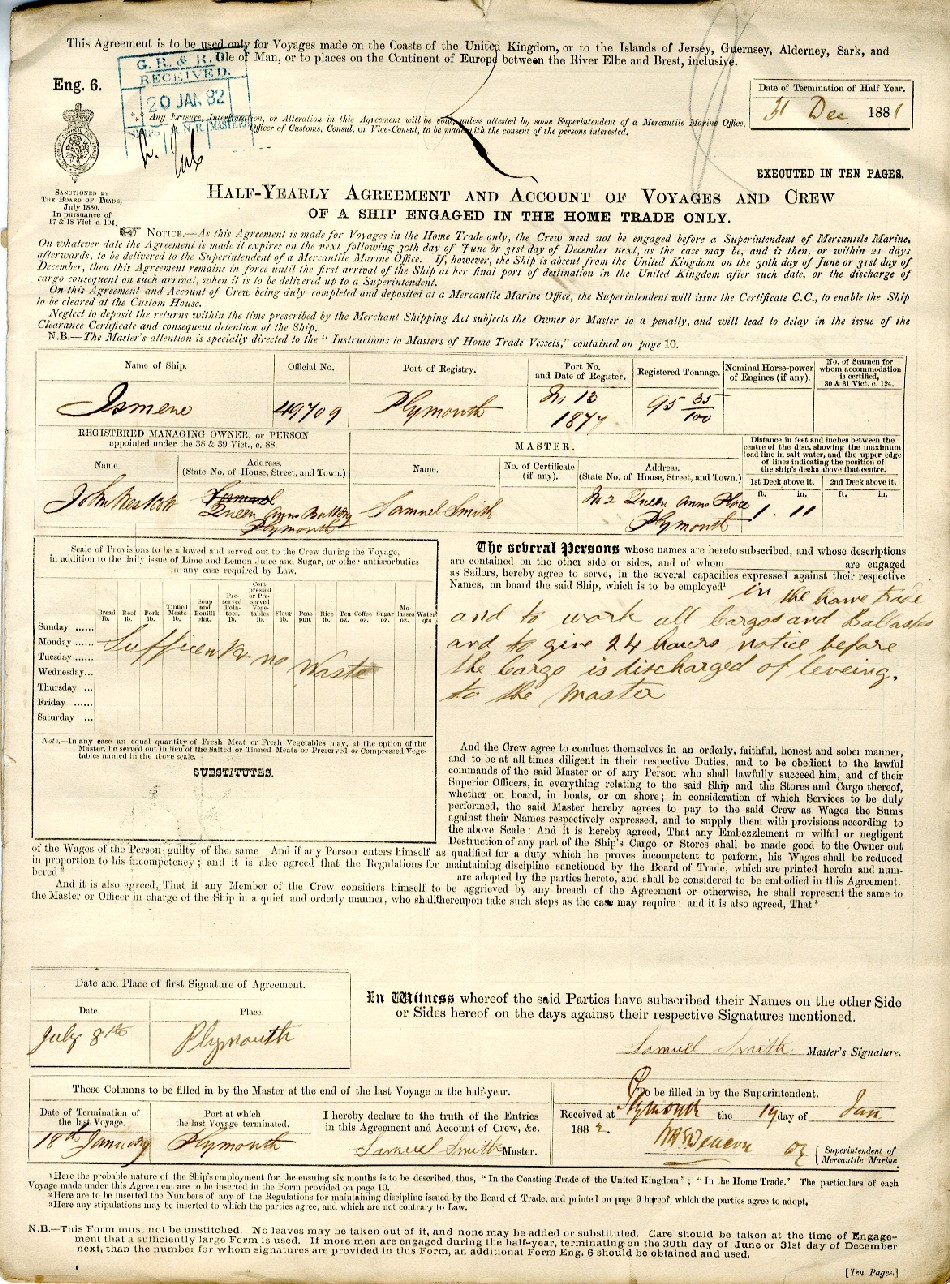 This Agreement is to be used only for Voyages made on the Coasts of the United Kingdom, or to the Islands of Jersey, Guernsey, Alderney, Sark, and
Isle of Man, or to places on the Continent of Europe between the River Elbe and Brest, inclusive.
Eng. 6.
G. R. & R.
RECEIVED.
20 JAN. 82
Any Erasure, Interlineation, or Alteration in this Agreement will be void, unless attested by some Superintendent of a Mercantile Marine Office,
Officer of Customs, Consul, or Vice-Consul, to be made with the consent of the persons interested.
Date of Termination of Half Year.
31 Dec 1881
EXECUTED IN TEN PAGES.
SANCTIONED BY
THE BOARD OF TRADE,
July 1880.
In pursuance of
17 & 18 Vict. c. 104.
HALF-YEARLY AGREEMENT AND ACCOUNT OF VOYAGES AND CREW
OF A SHIP ENGAGED IN THE HOME TRADE ONLY.
NOTICE.—As this Agreement is made for Voyages in the Home Trade only, the Crew need not be engaged before a Superintendent of Mercantile Marine.
On whatever date the Agreement is made it expires on the next following 30th day of June or 31st day of December next, as the case may be, and is then, or within 21 days
afterwards, to be delivered to the Superintendent of a Mercantile Marine Office. If, however, the Ship is absent from the United Kingdom on the 30th day of June or 31st day of
December, then this Agreement remains in force until the first arrival of the Ship at her final port of destination in the United Kingdom after such date, or the discharge of
cargo consequent on such arrival, when it is to be delivered up to a Superintendent.
On this Agreement and Account of Crew being duly completed and deposited at a Mercantile Marine Office, the Superintendent will issue the Certificate C.C., to enable the Ship
to be cleared at the Custom House.
Neglect to deposit the returns within the time prescribed by the Merchant Shipping Act subjects the Owner or Master to a penalty, and will lead to delay in the issue of the
Clearance Certificate and consequent detention of the Ship.
N.B.—The Master's attention is specially directed to the "Instructions to Masters of Home Trade Vessels," contained on page 10.
Name of Ship. Official No. Port of Registry. Port No. and Date of Register. Registered Tonnage. Nominal Horse-power of Engines (if any). No. of Seamen for whom accommodation is certified, 30 & 31 Vict. c. 124.
Ismene 49709 Plymouth 1877 95 35/100
REGISTERED MANAGING OWNER, or PERSON
appointed under the 38 & 39 Vict., c. 88.
MASTER.
Distance in feet and inches between the
centre of the disc, showing the maximum
load line in salt water, and the upper edge
of lines indicating the position of
the ship's decks above that centre.
Name. Address. (State No. of House, Street, and Town.) Name. No. of Certificate (if any). Address. (State No. of House, Street, and Town.) 1st Deck above it. 2nd Deck above it.
ft. in. ft. in.
John Queen Anns Battery Plymouth Samuel Smith No 2 Queen Anns Place Plymouth 1 . 11
Scale of Provisions to be allowed and served out to the Crew during the Voyage,
in addition to the daily issue of Lime and Lemon Juice and Sugar, or other antiscorbutics
in any case required by Law.
Bread lb. Beef lb. Pork lb. Flour lb. Peas pint Rice lb. Tea oz. Coffee oz. Sugar oz. Water qts
Sunday
Monday
Tuesday
Wednesday
Thursday
Friday
Saturday
Sufficent & no Waste
Note.—In any case an equal quantity of Fresh Meat or Fresh Vegetables may, at the option of the
Master, be served out in lieu of the Salted or Tinned Meats or Preserved or Compressed Vege-
tables named in the above scale.
SUBSTITUTES.
The several Persons whose names are hereto subscribed, and whose descriptions
are contained on the other side or sides, and of whom are engaged
as Sailors, hereby agree to serve, in the several capacities expressed against their respective
Names, on board the said Ship, which is to be employed¹ in the home trade
and to work all Cargos and Ballasts
and to give 24 hours notice before
the Cargo is discharged of leveing.
to the Master
And the Crew agree to conduct themselves in an orderly, faithful, honest and sober manner,
and to be at all times diligent in their respective Duties, and to be obedient to the lawful
commands of the said Master or of any Person who shall lawfully succeed him, and of their
Superior Officers, in everything relating to the said Ship and the Stores and Cargo thereof,
whether on board, in boats, or on shore; in consideration of which Services to be duly
performed, the said Master hereby agrees to pay to the said Crew as Wages the Sums
against their Names respectively expressed, and to supply them with provisions according to
the above Scale: And it is hereby agreed, That any Embezzlement or wilful or negligent
Destruction of any part of the Ship's Cargo or Stores shall be made good to the Owner out
of the Wages of the Person guilty of the same: And if any Person enters himself as qualified for a duty which he proves incompetent to perform, his Wages shall be reduced
in proportion to his incompetency; and it is also agreed that the Regulations for maintaining discipline sanctioned by the Board of Trade, which are printed herein and num-
bered² are adopted by the parties hereto, and shall be considered to be embodied in this Agreement.
And it is also agreed, That if any Member of the Crew considers himself to be aggrieved by any breach of the Agreement or otherwise, he shall represent the same to
the Master or Officer in charge of the Ship in a quiet and orderly manner, who shall thereupon take such steps as the case may require: and it is also agreed, That³
Date and Place of first Signature of Agreement.
Date Place.
July 8th Plymouth
In Witness whereof the said Parties have subscribed their Names on the other Side
or Sides hereof on the days against their respective Signatures mentioned.
Samuel Smith Master's Signature.
These Columns to be filled in by the Master at the end of the last Voyage in the half-year.
Date of Termination of the last Voyage. Port at which the last Voyage terminated.
I hereby declare to the truth of the Entries
in this Agreement and Account of Crew, &c.
18th January Plymouth Samuel Smith Master.
To be filled in by the Superintendent.
Received at Plymouth the 19 day of Jan
1882.
Superintendent of
Mercantile Marine
¹Here the probable nature of the Ship's employment for the ensuing six months is to be described, thus, "In the Coasting Trade of the United Kingdom"; "In the Home Trade." The particulars of each
Voyage made under this Agreement are to be inserted in the Form provided on page 10.
²Here are to be inserted the Numbers of any of the Regulations for maintaining discipline issued by the Board of Trade, and printed on page 9 hereof which the parties agree to adopt.
³Here any stipulations may be inserted to which the parties agree, and which are not contrary to Law.
N.B.—This Form must not be unstitched. No leaves may be taken out of it, and none may be added or substituted. Care should be taken at the time of Engage-
ment that a sufficiently large Form is used. If more men are engaged during the half-year, terminating on the 30th day of June or 31st day of December
next, than the number for whom signatures are provided in this Form, an additional Form Eng. 6 should be obtained and used.
[Ten Pages.]